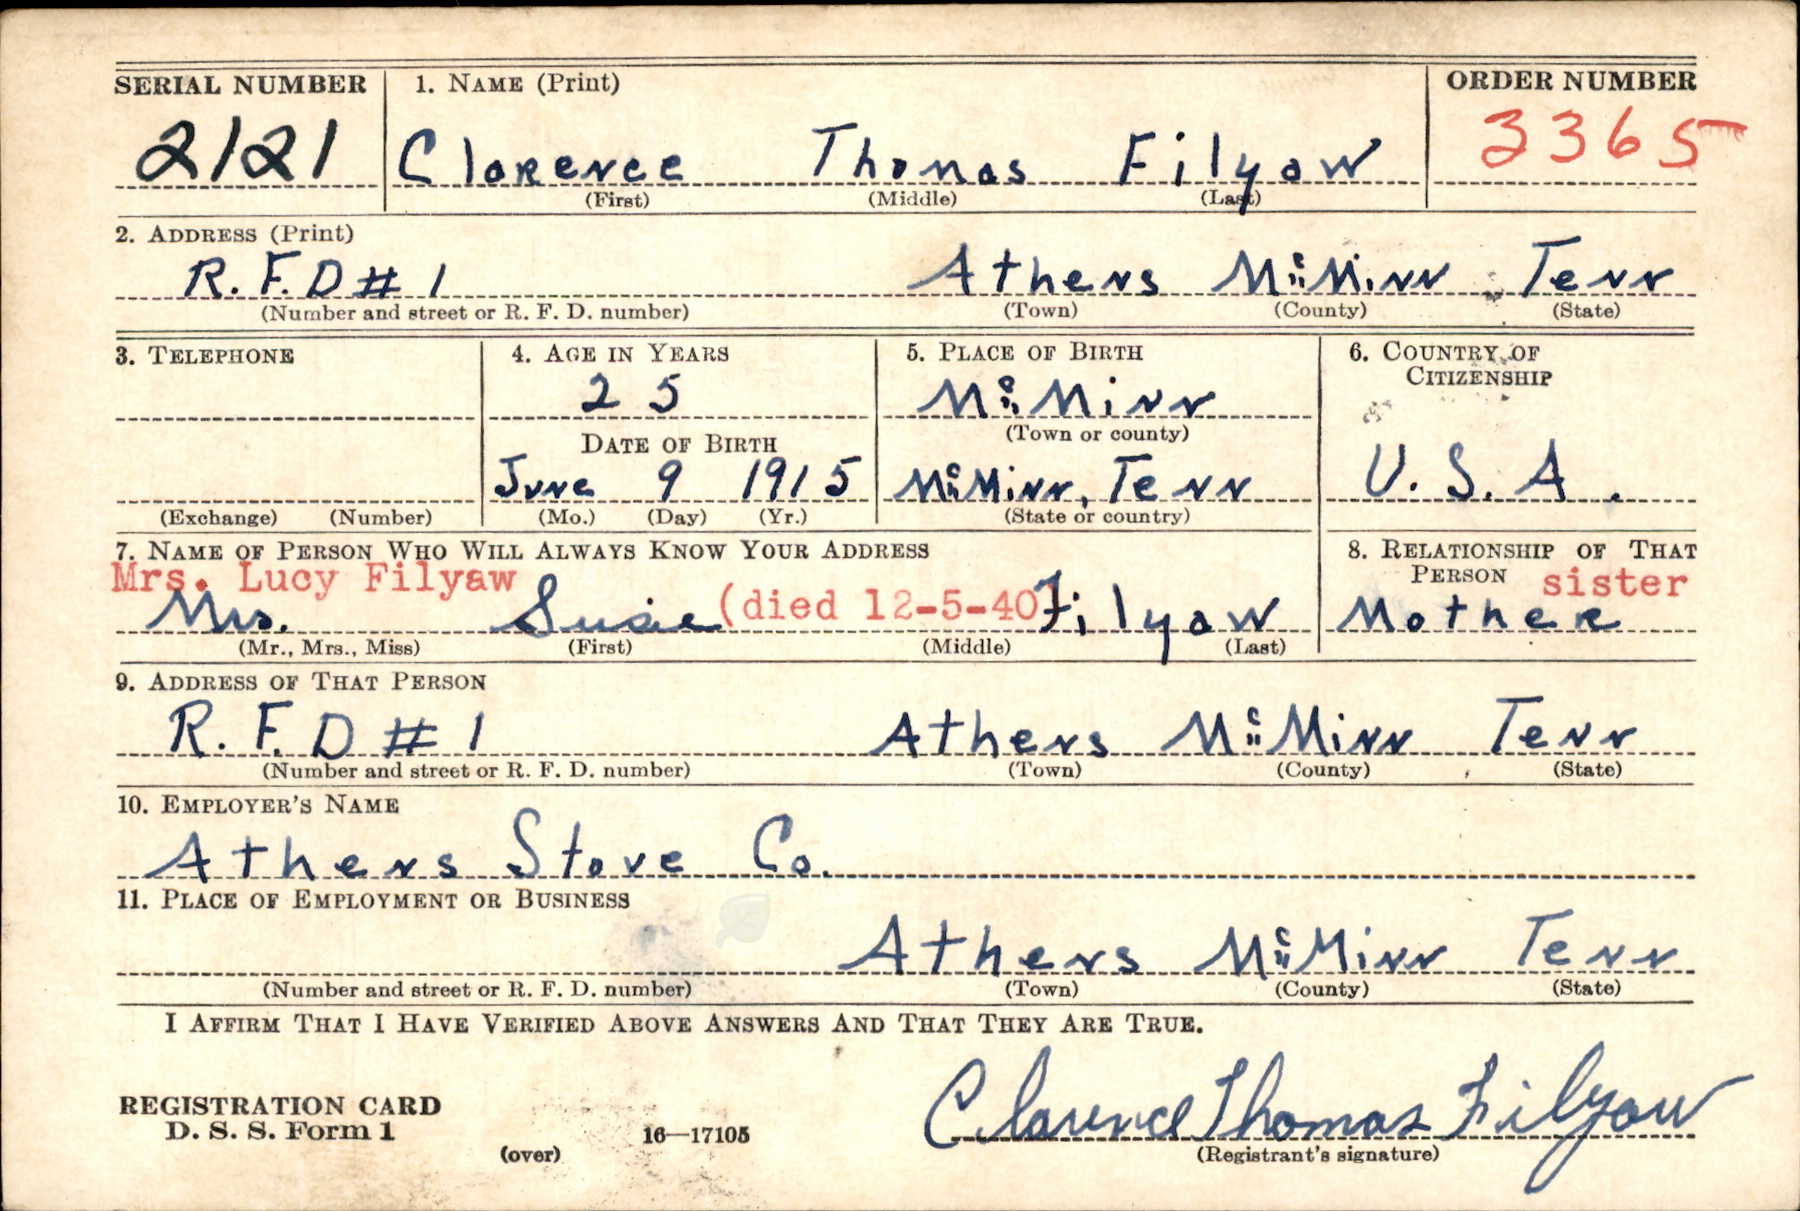 SERIAL NUMBER 1. NAME (Print) ORDER NUMBER
2121 Clarence Thomas Filyaw 3365
(First) (Middle) (Last)
2. ADDRESS (Print)
R. F. D # 1 Athens McMinn Tenn
(Number and street or R. F. D. number) (Town) (County) (State)
3. TELEPHONE 4. AGE IN YEARS 5. PLACE OF BIRTH 6. COUNTRY OF
CITIZENSHIP
25 McMinn
DATE OF BIRTH (Town or county)
June 9 1915 McMinn, Tenn U. S. A.
(Exchange) (Number) (Mo.) (Day) (Yr.) (State or country)
7. NAME OF PERSON WHO WILL ALWAYS KNOW YOUR ADDRESS 8. RELATIONSHIP OF THAT
Mrs. Lucy Filyaw PERSON sister
Mrs. Susie (died 12-5-40) Filyaw Mother
(Mr., Mrs., Miss) (First) (Middle) (Last)
9. ADDRESS OF THAT PERSON
R. F. D # 1 Athens McMinn Tenn
(Number and street or R. F. D. number) (Town) (County) (State)
10. EMPLOYER'S NAME
Athens Stove Co.
11. PLACE OF EMPLOYMENT OR BUSINESS
Athens McMinn Tenn
(Number and street or R. F. D. number) (Town) (County) (State)
I AFFIRM THAT I HAVE VERIFIED ABOVE ANSWERS AND THAT THEY ARE TRUE.
REGISTRATION CARD
D. S. S. Form 1 16—17105 Clarence Thomas Filyaw
(over) (Registrant's signature)